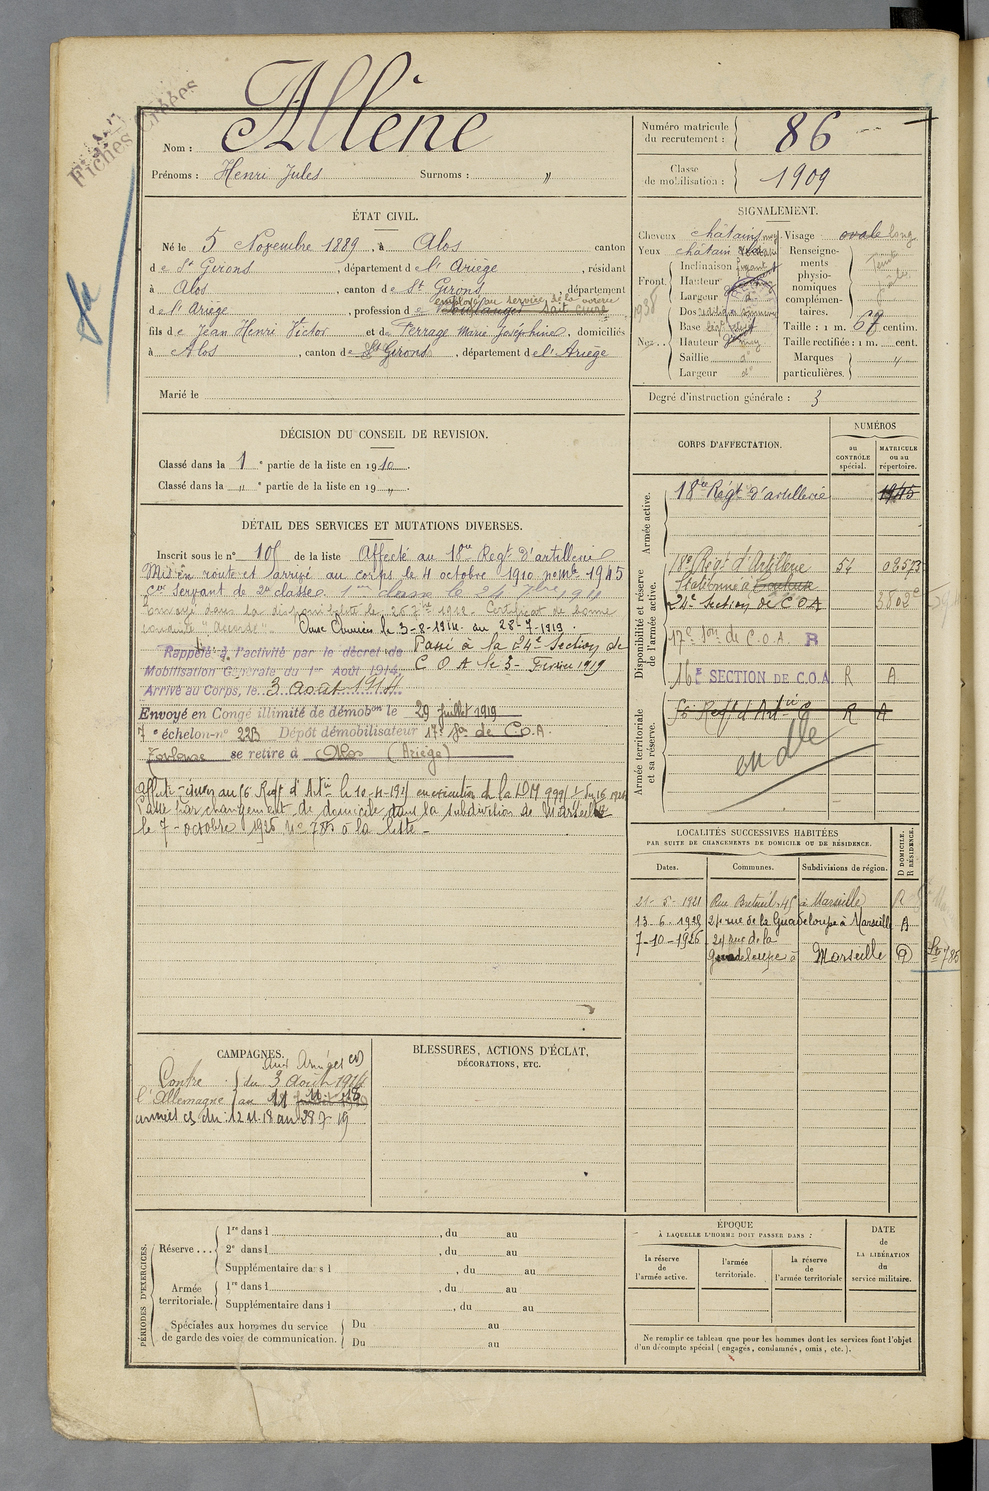 Fiches créées
Nom : Allène
Prénoms : Henri Jules Surnoms : "
Numéro matricule du recrutement : 86
Classe de mobilisation : 1909
ÉTAT CIVIL.
Né le 5 Novembre 1889, à Alos canton
de St Girons, département de l'Ariège, résidant
à Alos, canton de St Girons, département
employé au service de la voirie
de l'Ariège, profession de boulanger sait cuire
fils de Jean Henri Victor et de Ferrage Marie Joséphine, domiciliés
à Alos, canton de St Girons, département de l'Ariège
Marié le
SIGNALEMENT.
Cheveux châtains Visage ovale long
Yeux châtain
Renseignements physionomiques complémentaires. Teint
Front Inclinaison fuyant
Hauteur
Largeur
Nez Dos
Base
Hauteur
Saillie
Largeur
Taille : 1 m. 67 centim.
Taille rectifiée : 1 m. cent.
Marques particulières. "
Degré d'instruction générale : 3
DÉCISION DU CONSEIL DE REVISION.
Classé dans la 1e partie de la liste en 1910.
Classé dans la " e partie de la liste en 19 ".
DÉTAIL DES SERVICES ET MUTATIONS DIVERSES.
Inscrit sous le n° 105 de la liste Affecté au 18me Regt d'artillerie
Mis en route et arrivé au corps le 4 octobre 1910 no mle 1945
Cer servant de 2e classe. 1re classe le 24 7bre 1911
Envoyé dans la disponibilité le 26 7bre 1912. Certificat de bonne
conduite "Accordé". Aux Armées le 3-8-1914 au 28-7-1919.
Rappelé à l'activité par le décret de
Mobilisation Générale du 1er Août 1914,
Arrivé au Corps, le 3 août 1914.
Passé à la 24e Section de
C O A le 3 Février 1919
Envoyé en Congé illimité de démobon le 29 juillet 1919
7e échelon-n° 22B Dépôt démobilisateur 17e Son de C.O.A.
Toulouse se retire à Alos (Ariège)
Passé par changement de domicile dans la subdivision de Marseille
le 7 octobre 1926 No 785 à la liste
CORPS D'AFFECTATION.
NUMÉROS
au CONTRÔLE spécial.
MATRICULE ou au répertoire.
Armée active.
18me Régt d'artillerie 1945
Disponibilité et réserve de l'armée active.
18e Régt d'Artillerie 54 03573
Stationné à Toulouse
24e Section de C O A
17e Son de C.O.A. R
16E SECTION de C.O.A. R A
Armée territoriale et sa réserve.
R A
en dle
LOCALITÉS SUCCESSIVES HABITÉES
PAR SUITE DE CHANGEMENTS DE DOMICILE OU DE RÉSIDENCE.
Dates. Communes. Subdivisions de région. D DOMICILE. R RÉSIDENCE.
21-5-1921 Rue Breteuil, 45 à Marseille R
13-6-1928 24 rue de la Guadeloupe à Marseille A
7-10-1926 24 rue de la
Guadeloupe à Marseille D
785
CAMPAGNES.
Aux Armées
Contre l'Allemagne du 3 Août 1914
au 11 11 18
armées du 12 11 18 au 28 7 19
BLESSURES, ACTIONS D'ÉCLAT,
DÉCORATIONS, ETC.
PÉRIODES D'EXERCICES.
Réserve... 1re dans l , du au
2e dans l , du au
Supplémentaire dans l , du au
Armée territoriale. 1re dans l , du au
Supplémentaire dans l , du au
Spéciales aux hommes du service de garde des voies de communication. Du au
Du au
ÉPOQUE
À LAQUELLE L'HOMME DOIT PASSER DANS :
la réserve de l'armée active.
l'armée territoriale.
la réserve de l'armée territoriale
DATE de LA LIBÉRATION du service militaire.
Ne remplir ce tableau que pour les hommes dont les services font l'objet
d'un décompte spécial (engagés, condamnés, omis, etc.).